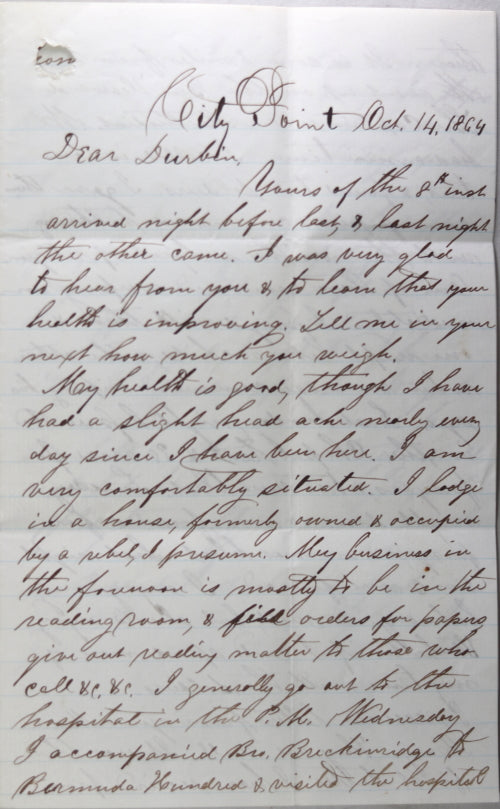 City Point Oct. 14, 1864
Dear Durbin,
Yours of the 8th inst
arrived night before last, & last night
the other came. I was very glad
to hear from you & to learn that your
health is improving. Tell me in your
next how much you weigh.
My health is good, though I have
had a slight head ache nearly every
day since I have been here. I am
very comfortably situated. I lodge
in a house, formerly owned & occupied
by a rebel, I presume. My business in
the forenoon is mostly to be in the
reading room, & fill orders for papers,
give out reading matter to those who
call &c. &c. I generally go out to the
hospital in the P.M. Wednesday
I accompanied Bro. Breckinridge to
Bermuda Hundred & visited the hospital